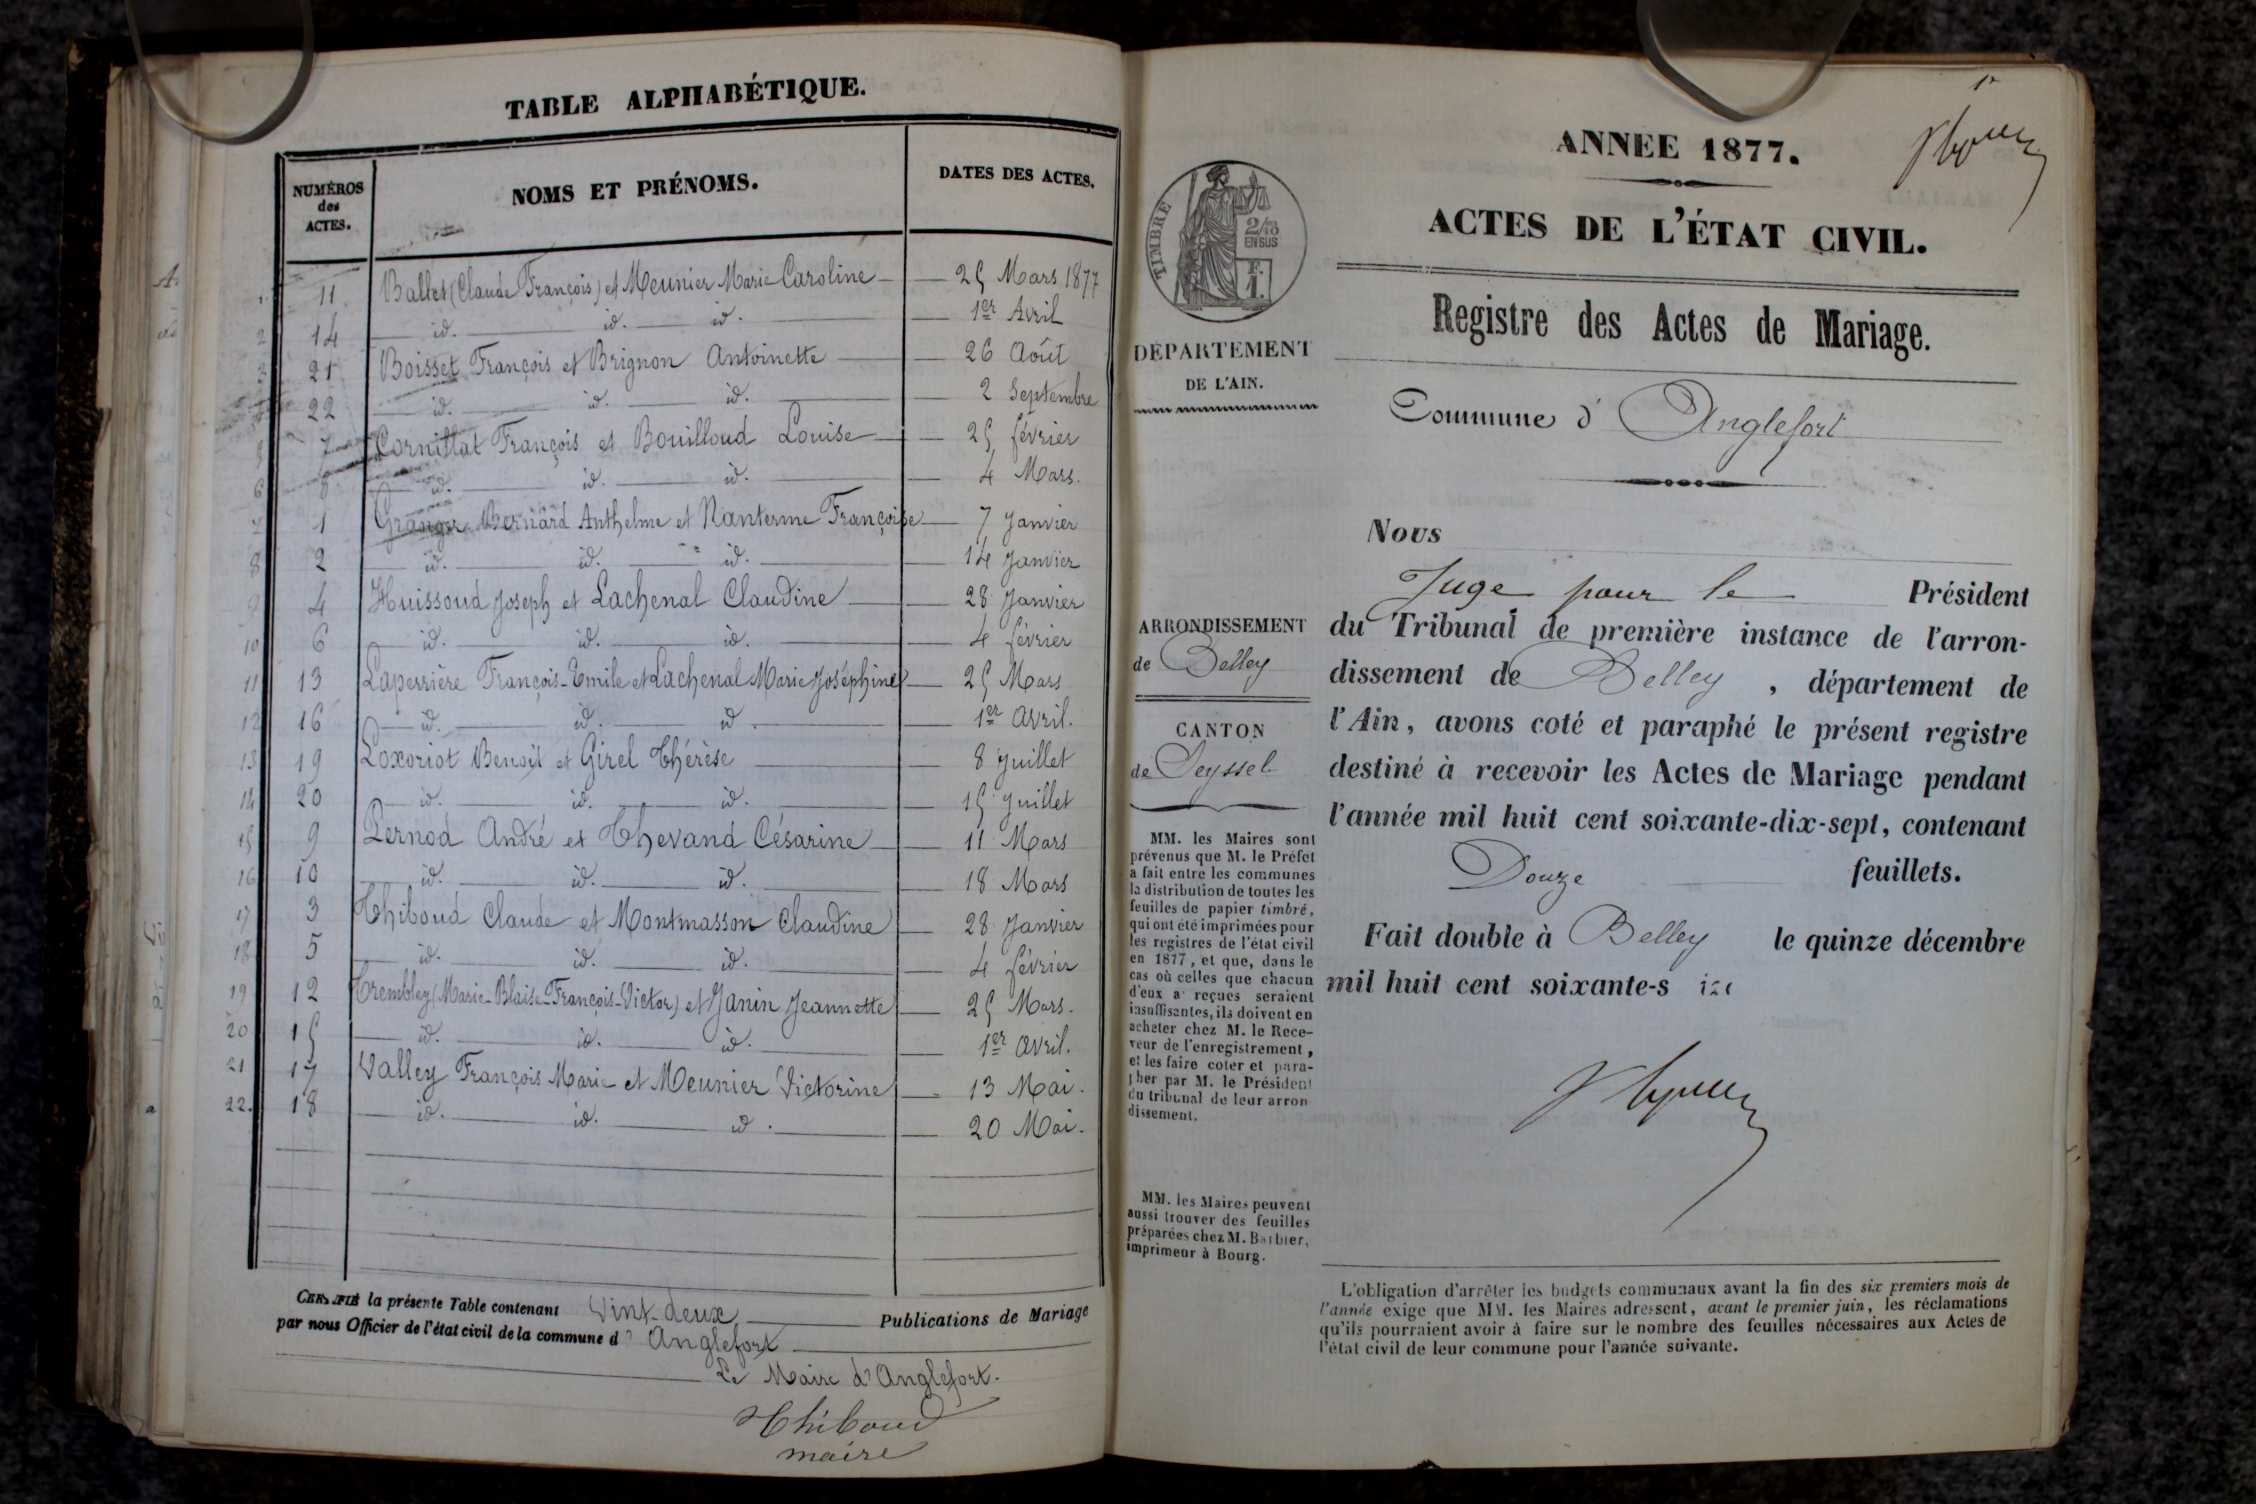 TABLE ALPHABÉTIQUE.
NUMÉROS des ACTES. NOMS ET PRÉNOMS. DATES DES ACTES.
1 11 Ballet (Claude François) et Meunier Marie Caroline 25 Mars 1877
2 14 id. id. id. 1er Avril
21 Boisset François et Brignon Antoinette 26 Août
22 id. id. id. 2 Septembre
7 Cornillat François et Bouilloud Louise 25 février
6 8 id. id. id. 4 Mars.
7 1 Granger Bernard Anthelme et Nanterme Françoise 7 Janvier
8 2 id. id. id. 14 Janvier
9 4 Huissoud Joseph et Lachenal Claudine 28 Janvier
10 6 id. id. id. 4 février
11 13 Laperrière François-Emile et Lachenal Marie Joséphine 25 Mars
12 16 id. id. id. 1er Avril.
13 19 Loxoriot Benoît et Girel Thérèse 8 Juillet
14 20 id. id. id. 15 Juillet
15 9 Pernod André et Thevand Césarine 11 Mars
16 10 id. id. id. 18 Mars
17 3 Thiboud Claude et Montmasson Claudine 28 Janvier
18 5 id. id. id. 4 février
19 12 Trembley (Marie-Blaise-François-Victor) et Janin Jeannette 25 Mars.
20 15 id. id. id. 1er Avril.
21 17 Valley François Marie et Meunier Victorine 13 Mai.
22. 18 id. id. id. 20 Mai.
CERTIFIÉ la présente Table contenant Vint-deux Publications de Mariage
par nous Officier de l'état civil de la commune d' Anglefort
Le Maire d'Anglefort.
Thiboud
maire
1r
ANNÉE 1877.
ACTES DE L'ÉTAT CIVIL.
TIMBRE
2/10
EN SUS
F.
1.
Registre des Actes de Mariage.
DÉPARTEMENT
DE L'AIN.
Commune d' Anglefort
ARRONDISSEMENT
de Belley
CANTON
de Seyssel
MM. les Maires sont
prévenus que M. le Préfet
a fait entre les communes
la distribution de toutes les
feuilles de papier timbré,
qui ont été imprimées pour
les registres de l'état civil
en 1877, et que, dans le
cas où celles que chacun
d'eux a reçues seraient
insuffisantes, ils doivent en
acheter chez M. le Rece-
veur de l'enregistrement,
et les faire coter et para-
pher par M. le Président
du tribunal de leur arron
dissement.
MM. les Maires peuvent
aussi trouver des feuilles
préparées chez M. Barbier,
imprimeur à Bourg.
Nous
Juge pour le Président
du Tribunal de première instance de l'arron-
dissement de Belley , département de
l'Ain, avons coté et paraphé le présent registre
destiné à recevoir les Actes de Mariage pendant
l'année mil huit cent soixante-dix-sept, contenant
Douze feuillets.
Fait double à Belley le quinze décembre
mil huit cent soixante-s
L'obligation d'arrêter les budgets communaux avant la fin des six premiers mois de
l'année exige que MM. les Maires adressent, avant le premier juin, les réclamations
qu'ils pourraient avoir à faire sur le nombre des feuilles nécessaires aux Actes de
l'état civil de leur commune pour l'année suivante.